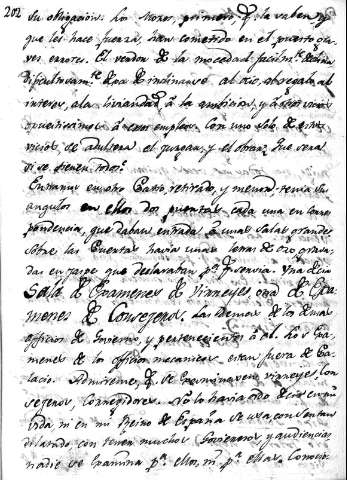 202
su obligacion. los Moros, primero, q̃ la saben, y
que les hace fuerza, han cometido en el puerto gra
ves errores. El verdor de la mocedad facilm.te declina
dificultosam.te dexa de inclinarse al ocio, al regalo, al
interes, a la liviandad, â la ambicion, y a otros vicios
opuestissimos â esos empleos. Con uno solo de estos
vicios se adultera el juzgar, y el obrar. Que sera
si se tienen todos?
Entramos en otro Patio, retirado, y menor tenia sus
angulos en ellos dos puertas cada una en corres
pondencia, que daban entrada â unas Salas grandes
sobre las Puertas havia unas letras de oro grava
das en jaspe que declaraban p.a Una decia
Sala de Examenes de Virreyes, otra de Exa
menes de Consegeros. Las demas de los demas
officios de Govierno, y pertenecientes â el. los Exa
menes de los officios mecanicos estan fuera de Pa
lacio. Admireme, q̃ se Examinasen virreyes, Con
segeros, Corregidores. No lo havia oido decir en mi
vida, ni en mi Reino de España se usa con ser tan
dilatado con tener muchos Goviernos y audiencias
nadie se Examina p.a ellos, ni p.a ellas. Conocio